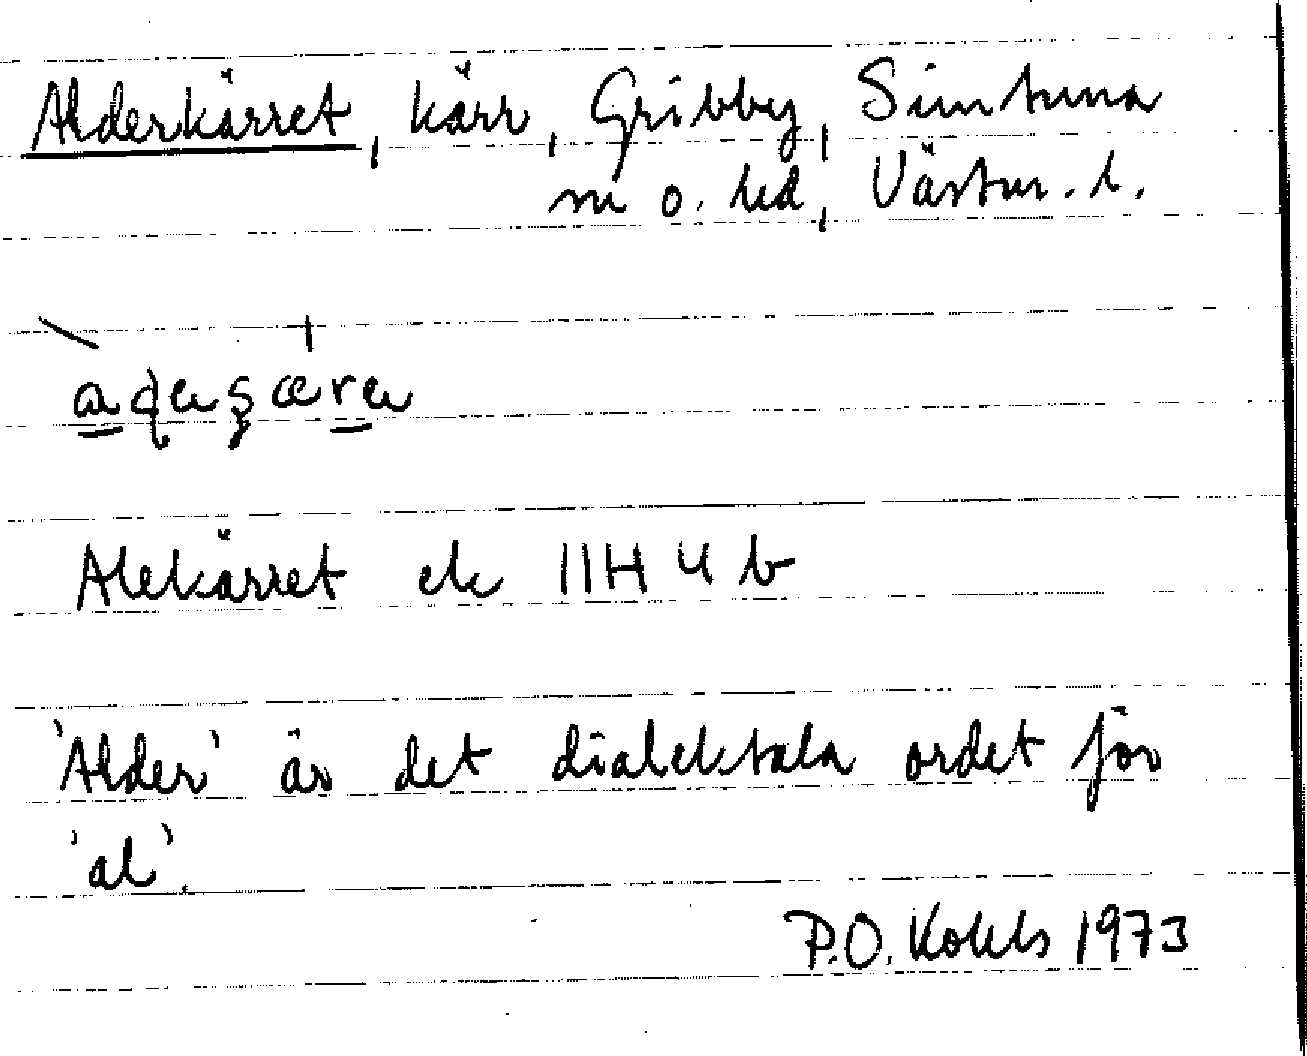 Alderkärret, kärr, Gribby, Simtuna
sn o. hd, Västm. l.
Alekärret ek 11H 4 b
'Alder' är det dialektala ordet för
'al'.
P.O. Kohls 1973